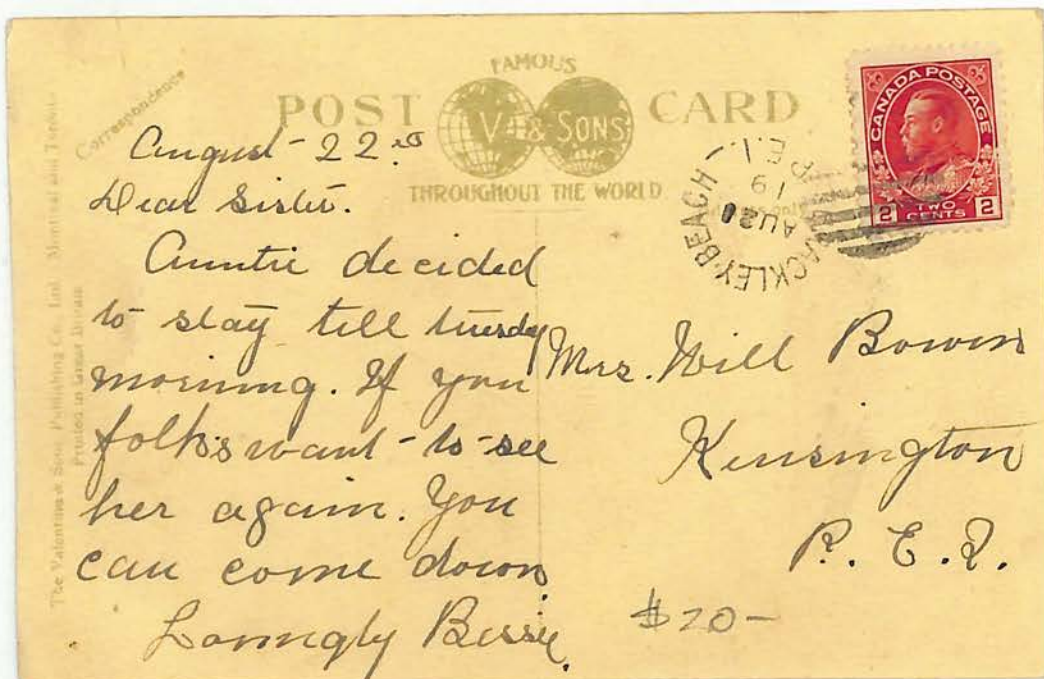 FAMOUS
POST CARD
V. & SONS
THROUGHOUT THE WORLD
Correspondence
The Valentine & Sons Publishing Co., Ltd. Montreal and Toronto
Printed in Great Britain
CANADA POSTAGE
2 TWO CENTS 2
BRACKLEY BEACH
P.E.I.
19
AU 20
August - 22nd
Dear Sister.
Auntie decided
to stay till
morning. If you
folks want to see
her again. You
can come down
Lovingly Bessie.
Mrs. Will Bowen
Kensington
P. E. I.
$20-